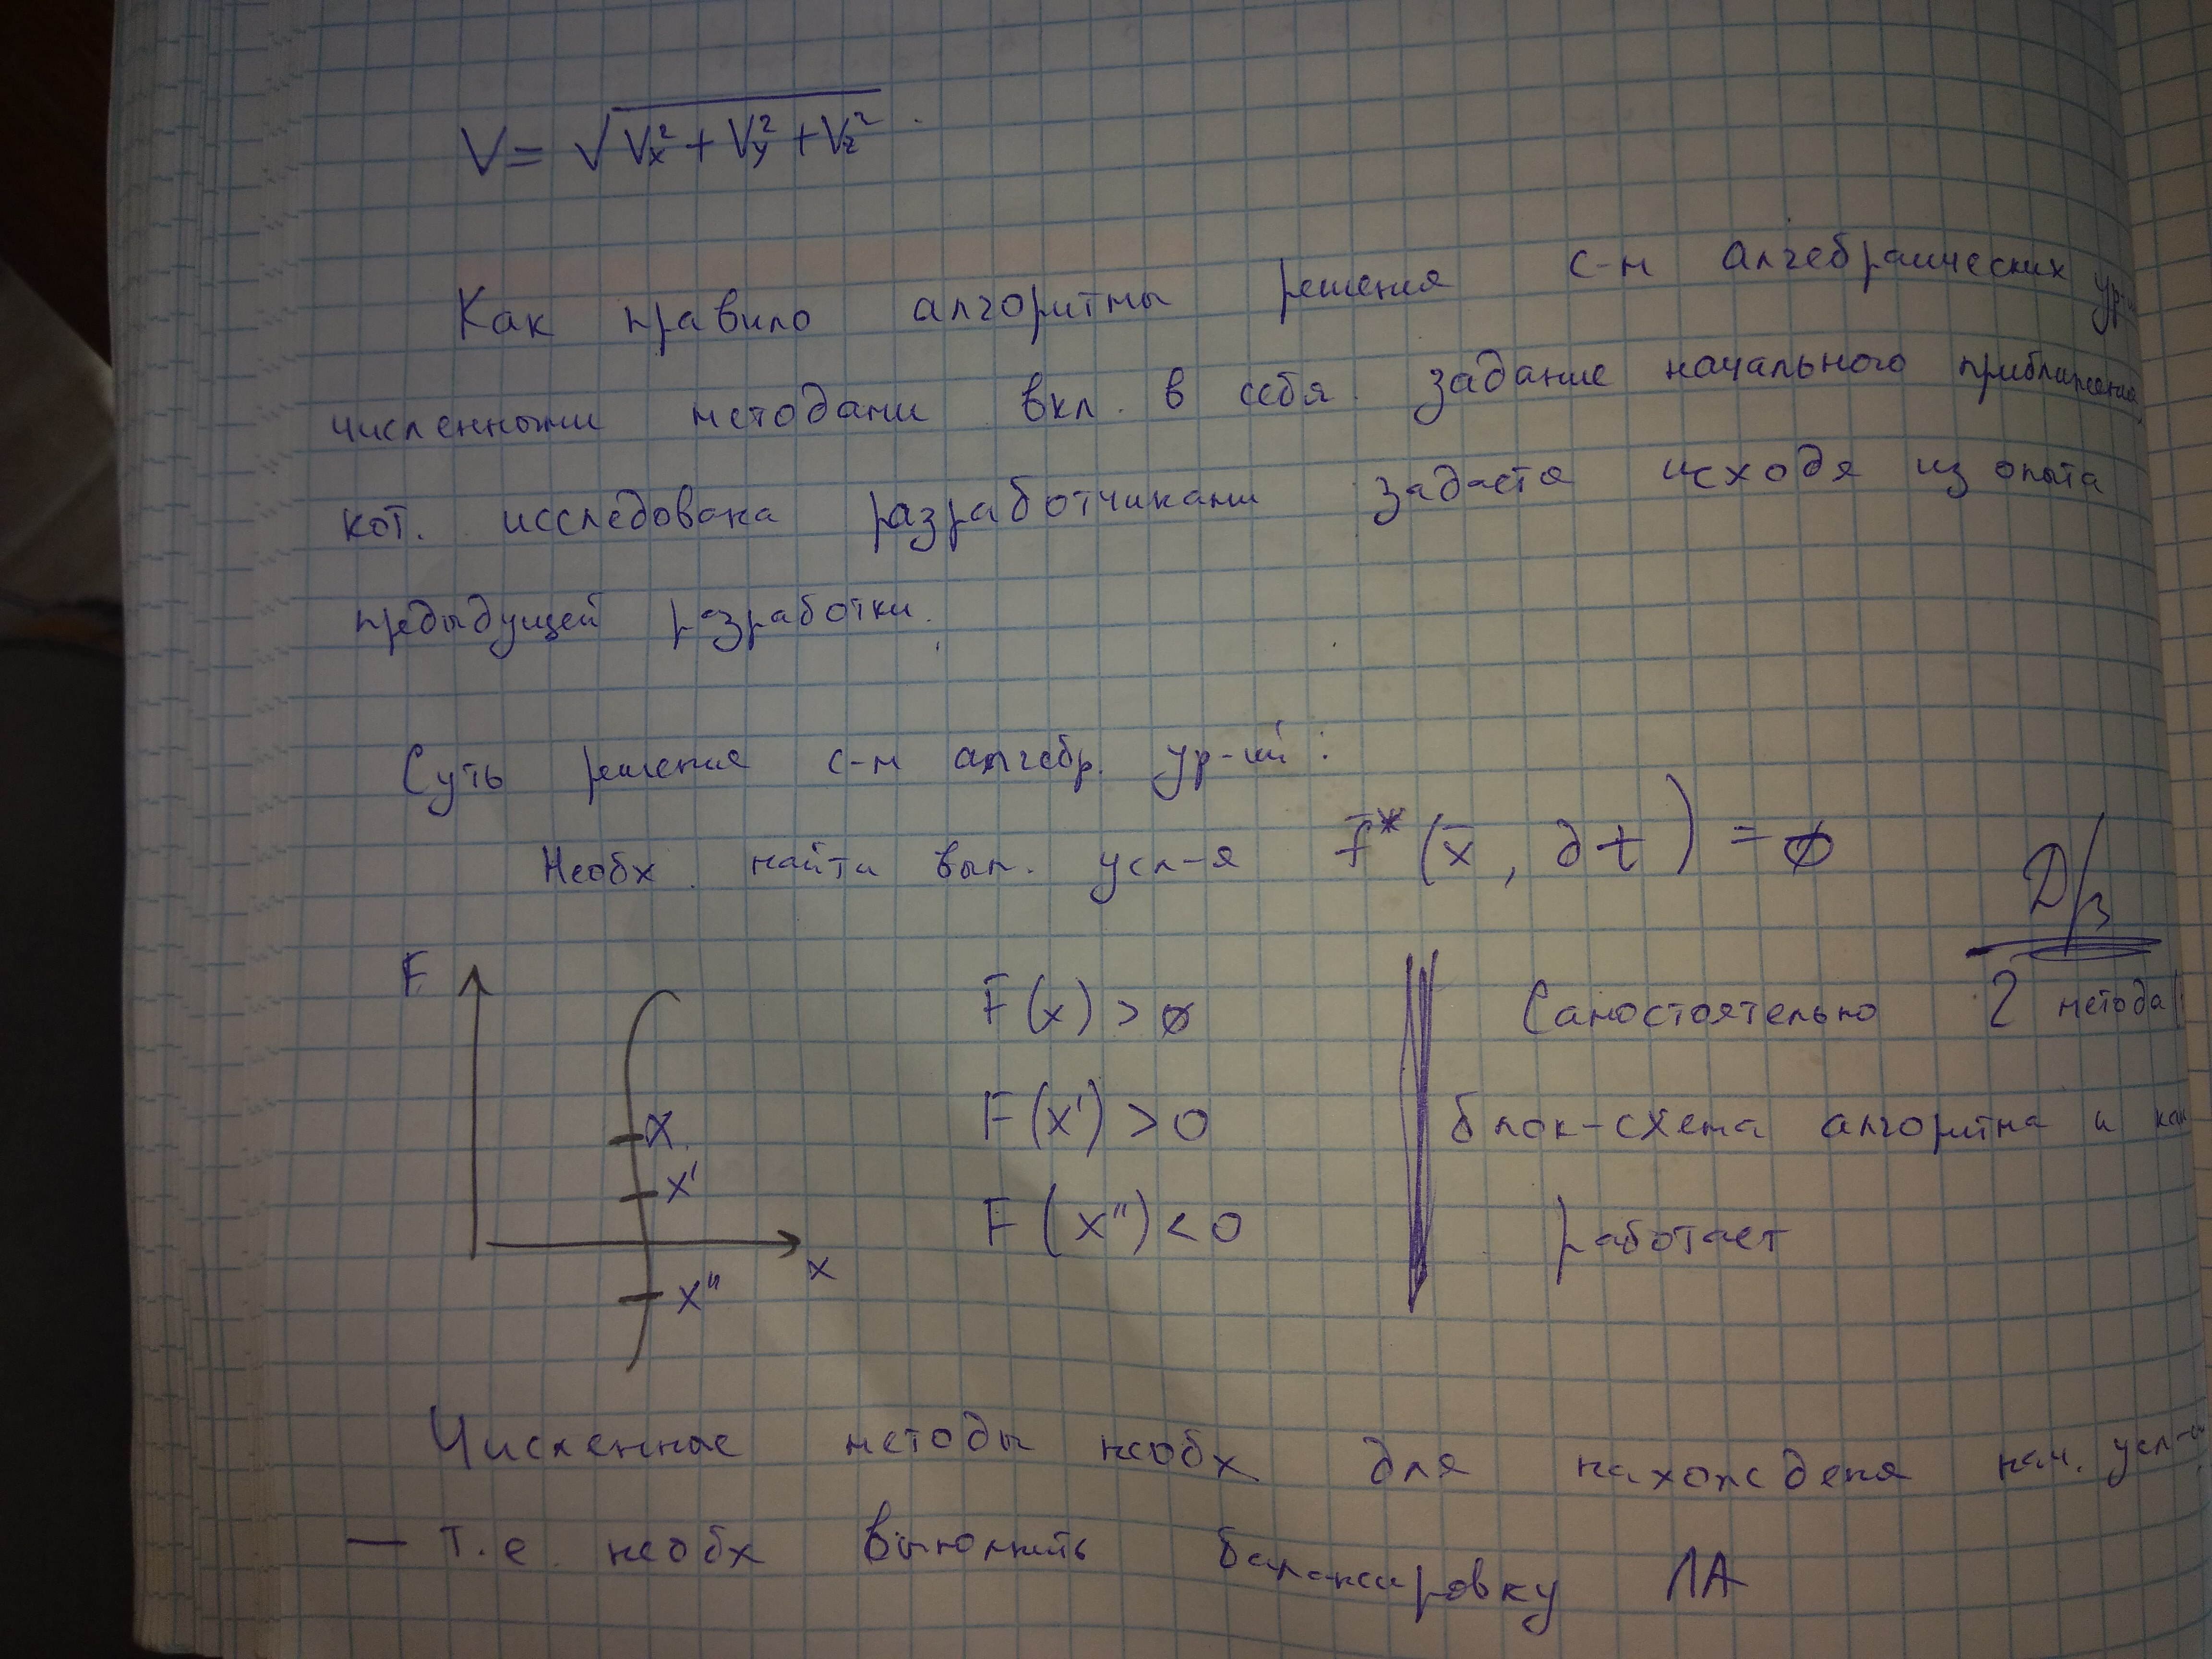 V = √Vx² + Vy² + Vz²
Как правило алгоритмы решения с-м алгебраических
численными методами вкл. в себя задание начального приближения,
кот. исследована разработчиками задаётся исходя из опыта
предыдущей разработки.
Суть решения с-м алгебр. ур-ий:
Необх. найти вып. усл-я f̄*(x̄, ∂t) = 0
Д/з
F
x
x'
x"
x
F(x) > 0
F(x') > 0
F(x") < 0
Самостоятельно 2 метода
блок-схема алгоритма и как
работает
Численные методы необх для нахождения нач. усл-
— т.е. необх выполнить балансировку ЛА